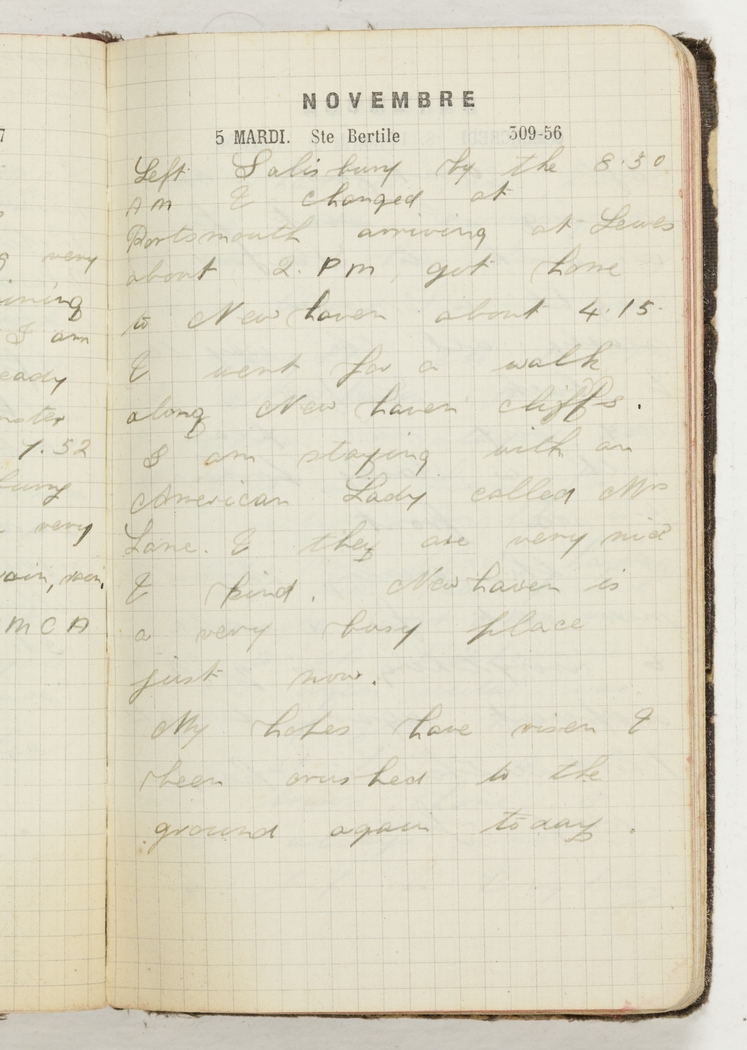 7
very
ining
I am
eady
7.52
bury
very
rain, rain,
M C A
NOVEMBRE
5 MARDI. Ste Bertile 309-56
Left Salisbury by the 8.50
AM & changed at
Portsmouth arriving at Lewes
about 2. PM, got home
to Newhaven about 4.15.
& went for a walk
along Newhaven cliffs.
I am staying with an
American Lady called Mrs
Lane. & they are very nice
& kind. Newhaven is
a very busy place
just now.
My hopes have risen &
been crushed to the
ground again today.